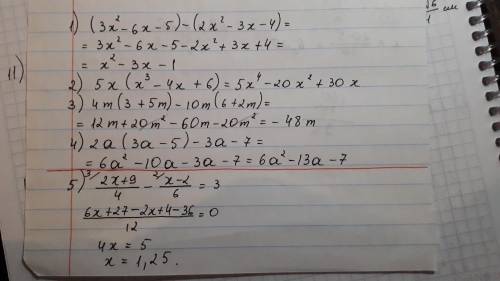 √6/1 см
11)
1) (3x² - 6x - 5) - (2x² - 3x - 4) =
= 3x² - 6x - 5 - 2x² + 3x + 4 =
= x² - 3x - 1
2) 5x (x³ - 4x + 6) = 5x⁴ - 20x² + 30x
3) 4m (3 + 5m) - 10m (6 + 2m) =
= 12m + 20m² - 60m - 20m² = - 48m
4) 2a (3a - 5) - 3a - 7 =
= 6a² - 10a - 3a - 7 = 6a² - 13a - 7
5) ³⁄ (2x+9)/4 - ²⁄ (x-2)/6 = 3
(6x + 27 - 2x + 4 - 36)/12 = 0
4x = 5
x = 1,25.